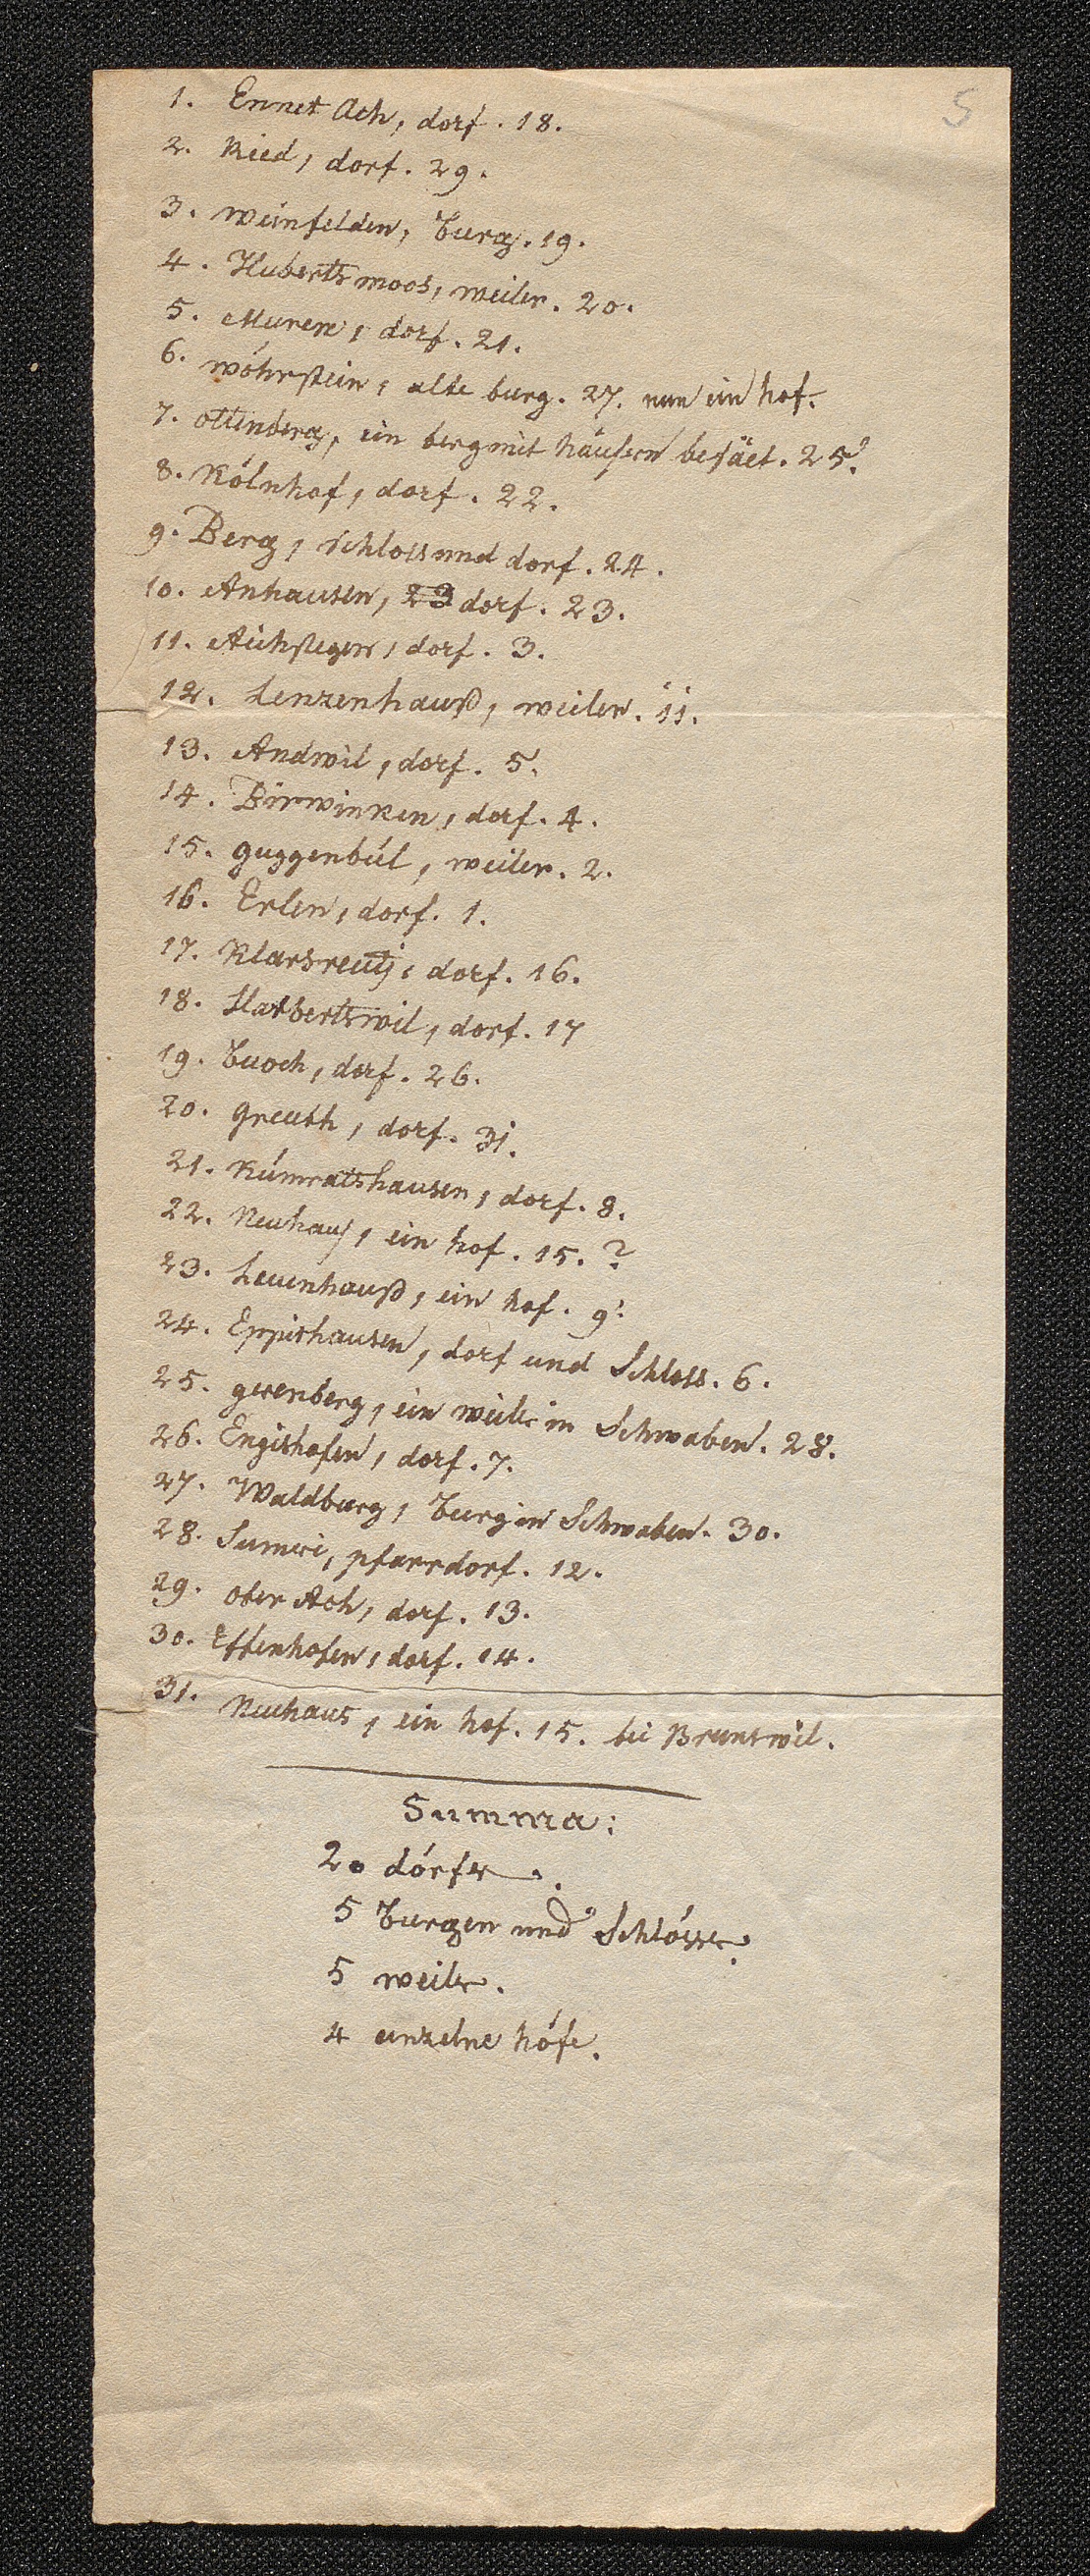 5
1. Ennet Ach, dorf. 18.
2. Ried, dorf. 29.
3. weinfelden, Burg. 19.
4. Hubertsmoos, weiler. 20.
5. Muren, dorf. 21.
6. wöhrstein, alte burg. 27. nun ein hof.
7. ottenberg, ein berg mit häusern besäet. 25.
8. Kölnhof, dorf. 22.
9. Berg, schloss und dorf. 24.
10. Anhausen, 23 dorf. 23.
11. Aichstegen, dorf. 3.
12. Lenzenhauß, weiler. 11.
13. Andwil, dorf. 5.
14. Birwinken, dorf. 4.
15. guggenbül, weiler. 2.
16. Erlen, dorf. 1.
17. Klarsreuti, dorf. 16.
18. Harbertswil, dorf. 17
19. Buoch, dorf. 26.
20. greuth, dorf. 31.
21. Kümratshausen, dorf. 8.
22. Neuhaus, ein hof. 15. ?
23. Leuenhauß, ein hof. 9.
24. Eppishausen, dorf und Schloss. 6.
25. gerenberg, ein weiler in Schwaben. 28.
26. Engishofen, dorf. 7.
27. Waldburg, Burg in Schwaben. 30.
28. Sumeri, pfarrdorf. 12.
29. ober Ach, dorf. 13.
30. Effenhofen, dorf. 14.
31. Neuhaus, ein hof. 15. bei Brunswil.
Summa:
20 dörfer.
5 Burgen und Schlösser.
5 weiler.
4 einzelne höfe.